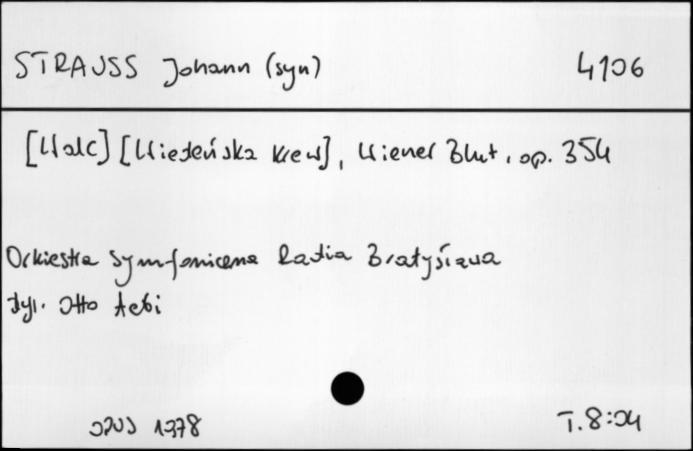 STRAUSS Johann (syn) 4106
[Walc] [Wiedeńska krew], Wiener Blut, op. 354
Orkiestra Symfoniczna Radia Bratysława
dyr. Otto Aebi
OPUS 1978
T. 8:04